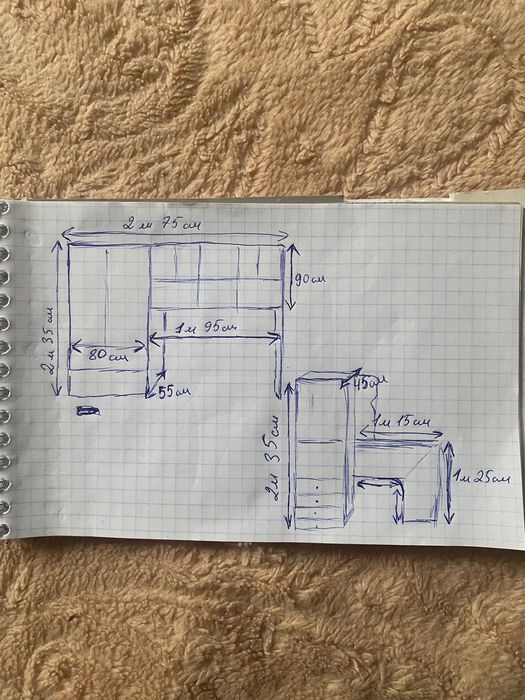 2 м 75 см
2 м 35 см
90 см
1 м 95 см
80 см
55 см
45 см
1 м 15 см
2 м 35 см
1 м 25 см